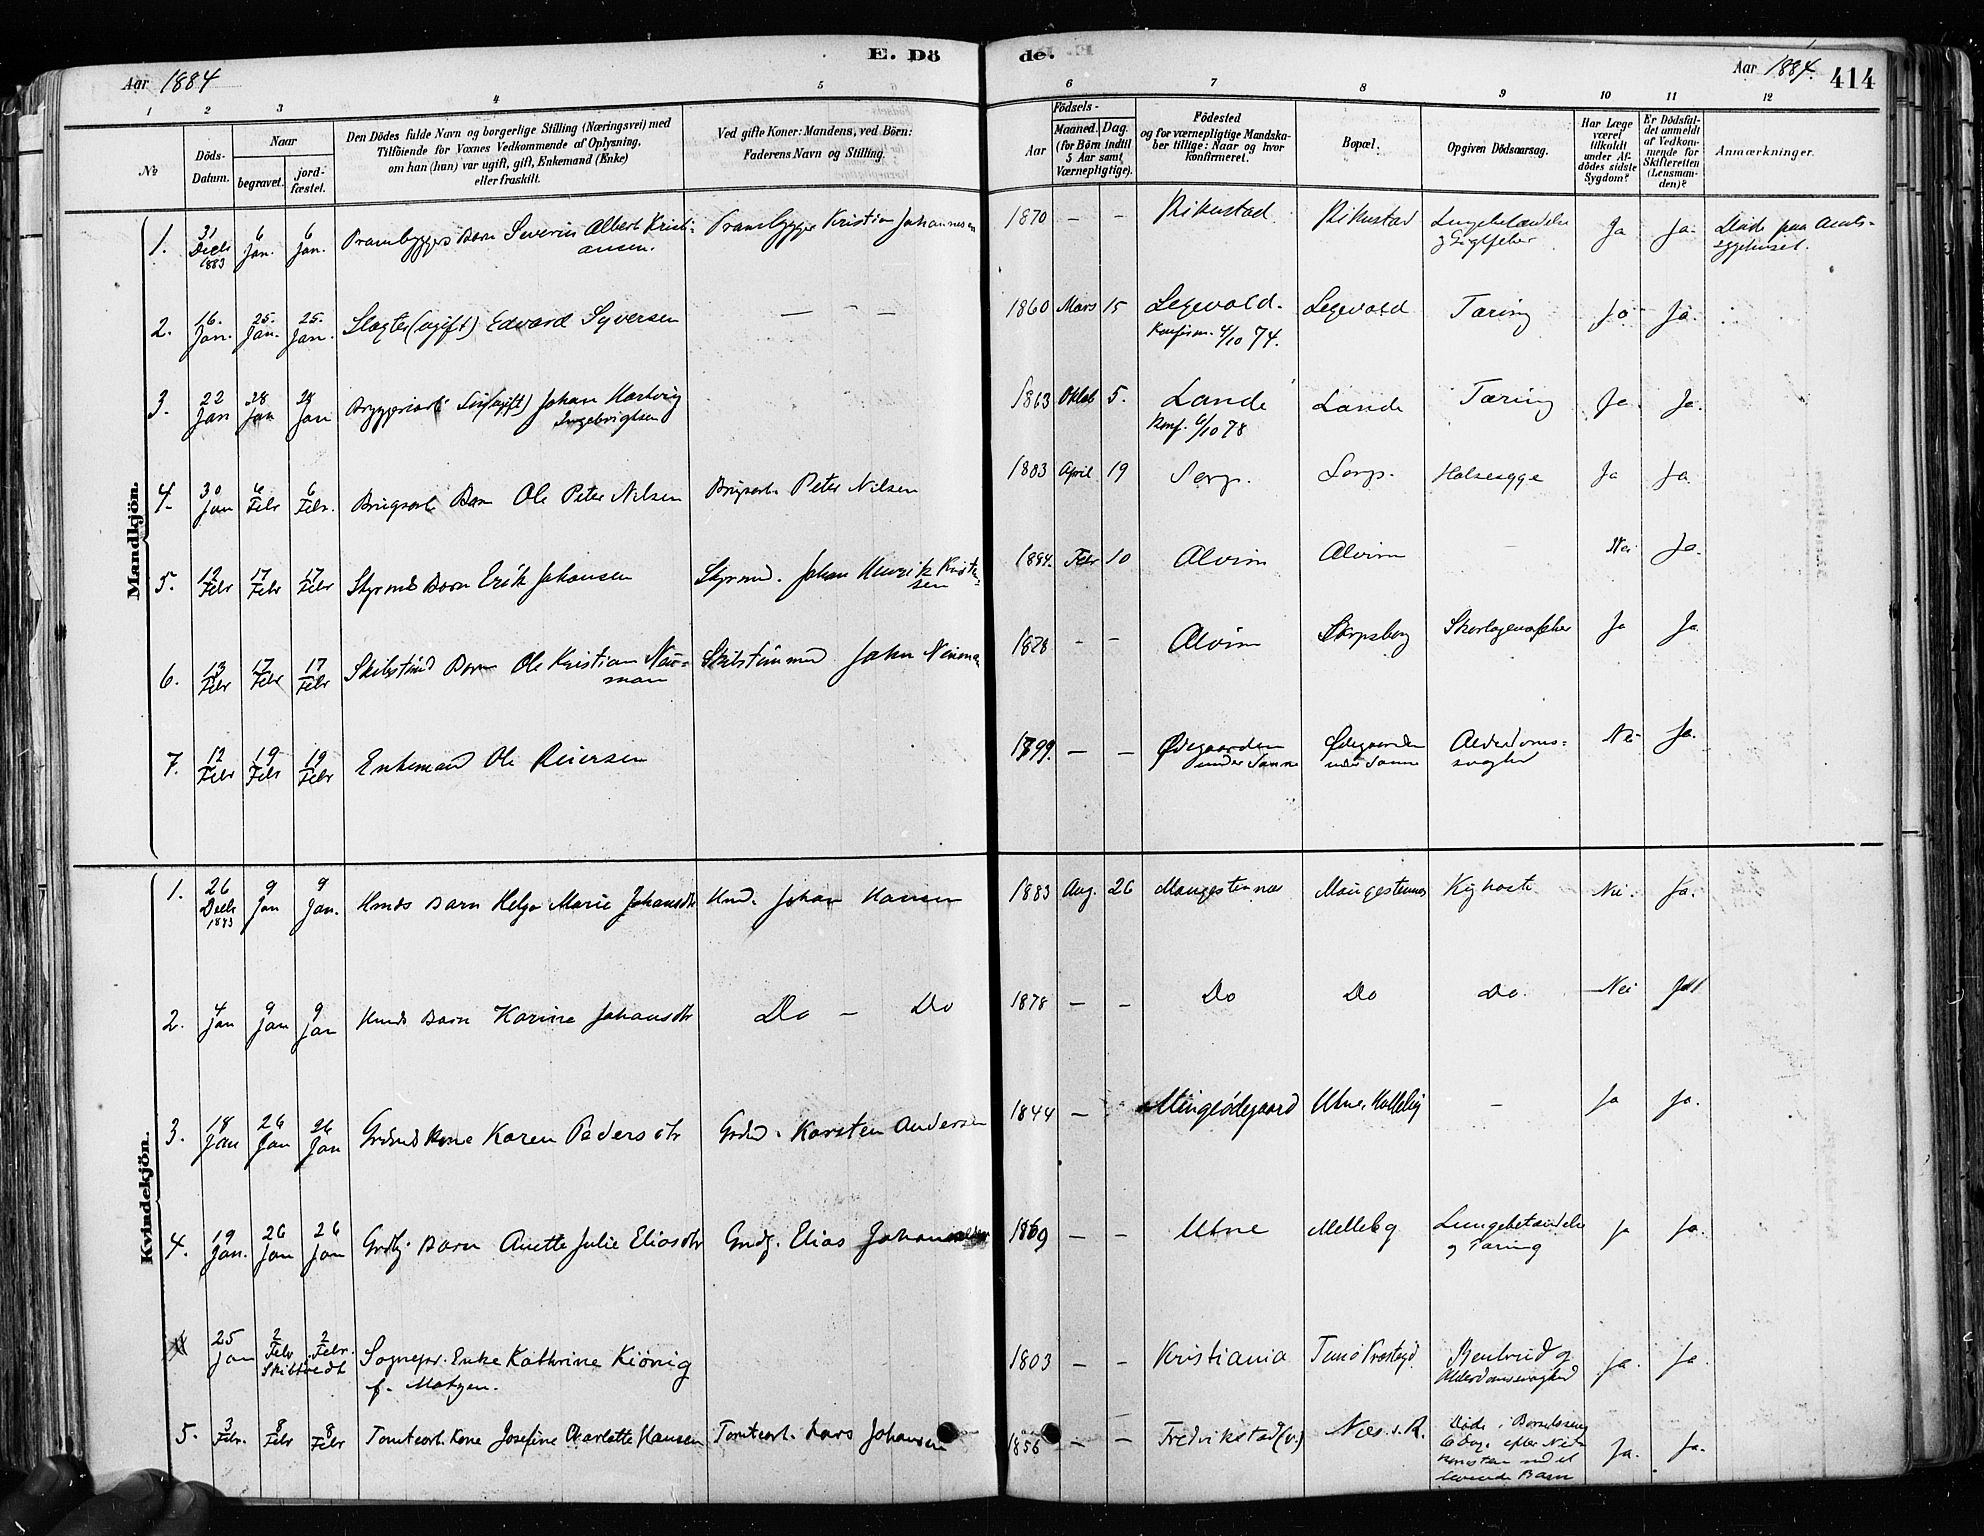 E. Dö de.
Aar 1884
Aar 1884.
414
1 2 3 4 5 6 7 8 9 10 11 12
№
Döds-Datum.
Naar
begravet.
jord-fæstet.
Den Dödes fulde Navn og borgerlige Stilling (Næringsvei) med
Tilföiende for Voxnes Vedkommende af Oplysning,
om han (hun) var ugift, gift, Enkemand (Enke)
eller fraskilt.
Ved gifte Koner: Mandens, ved Börn:
Faderens Navn og Stilling.
Födsels-
Aar
Maaned. Dag.
(for Börn indtil
5 Aar samt
Værnepligtige).
Födested
og for værnepligtige Mandska-
ber tillige: Naar og hvor
konfirmeret.
Bopæl.
Opgiven Dödsaarsag.
Har Læge
været
tilkaldt
under Af-
dödes sidste
Sygdom?
Er Dödsfal-
det anmeldt
af Vedkom-
mende for
Skifteretten
(Lensman-
den)?
Anmærkninger.
Mandkjön.
1. 31 Decb 1883 6 Jan. 6 Jan. Prambyggers Barn Severin Albert Kristi-
ansen. Prambygger Kristian Johannesen 1870 — — Rikustad Rikustad Lungebetændelse
og Gigtfeber Ja Ja. Døde paa Amts-
sygehuset.
2. 16. Jan. 25. Jan. 25. Jan. Slagter (ugift) Edvard Syversen — — — 1860 Mars 15 Legevold. Legevold Tæring Ja Ja.
Konfirm. 4/10 74.
3. 22 Jan 28 Jan 28 Jan Bryggeriarb (ugift) Johan Hartvig
Ingebrigtsen 1863 Oktob 5. Lande Lande Tæring Ja Ja.
Konf. 6/10 78
4. 30 Jan 6 Febr 6 Febr. Brugsarb. Barn Ole Peter Nilsen Brugsarb. Peter Nilsen 1883 April 19 Halsesyge Ja Ja.
5. 12 Febr 17 Febr 17 Febr Styrmds Barn Erik Johansen Styrmd. Johan Henrik Kristen-
sen 1884. Febr 10 Alvim Alvim — Nei Ja.
6. 13 Febr 17 Febr 17 Febr Barn Ole Kristian
man John 1878 — — Alvim Skarlagensfeber Ja Ja.
7. 12 Febr 19 Febr 19 Febr Enkemand Ole Reiersen 1799. — — Ødegaarden
under Tanne Ødegaarden
under Tanne Alderdoms-
svaghed Nei Ja.
Kvindekjön.
1. 26 Decb 1883 9 Jan 9 Jan. Hmds Barn Helga Marie Johansdtr Hmd. Johan Hansen 1883 Aug. 26 Maugestennæs Maugestennæs Kighoste Nei. Ja.
2. 4 Jan 9 Jan 9 Jan Hmds Barn Karine Johansdtr Do — Do 1878 — — Do Do Do. Nei Ja
3. 18 Jan 26 Jan 26 Jan Grdmds Kone Karen Pedersdtr Grdmd. Karsten Andersen 1844 — Mingeødegaard Utne, Melleby — Ja Ja.
4. 19 Jan. 26 Jan 26 Jan Grdbr. Barn Anette Julie Eliasdtr Grdbr. Elias Johannesen 1869 — — Utne Melleby Lungebetændelse
og Tæring Ja Ja.
25 Jan 2 Febr 2 Febr. Skibtvedt Sognepr. Enke Kathrine Kiönig
f. Matzen. 1803 — — Kristiania Tunø Præstegd Benbrud og
Alderdomssvaghed Ja. Ja.
5. 3 Febr. 8 Febr 8 Febr Tomtearb. Kone Josefine Charlotte Hansen Tomtearb. Lars Johansen 1856 — — Fredrikstad (v.) Næs. i. R. Døde i Barselseng
6 Dage efter Ned-
komsten med et
levende Barn Ja. Ja.